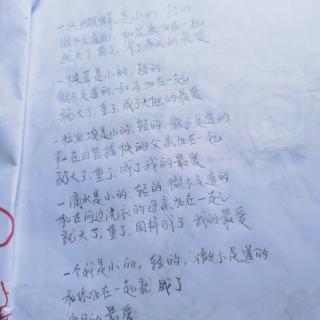 一只蝴蝶是小的，轻的
微不足道的，和花朵加在一起
就大了，重了，成了春天的最爱
一棵草是小的，轻的
微不足道的，和 加在一起
就大了，重了，成了大地的最爱
一粒 是小的，轻的，微不足道的
和在田里播秧的父亲加在一起
就大了，重了，成了我的最爱
一滴水是小的，轻的，微不足道的
和在河边洗衣的母亲加在一起
就大了，重了，同样成了我的最爱
一个我是小的，轻的，微不足道的
和你加在一起就成了
的最爱